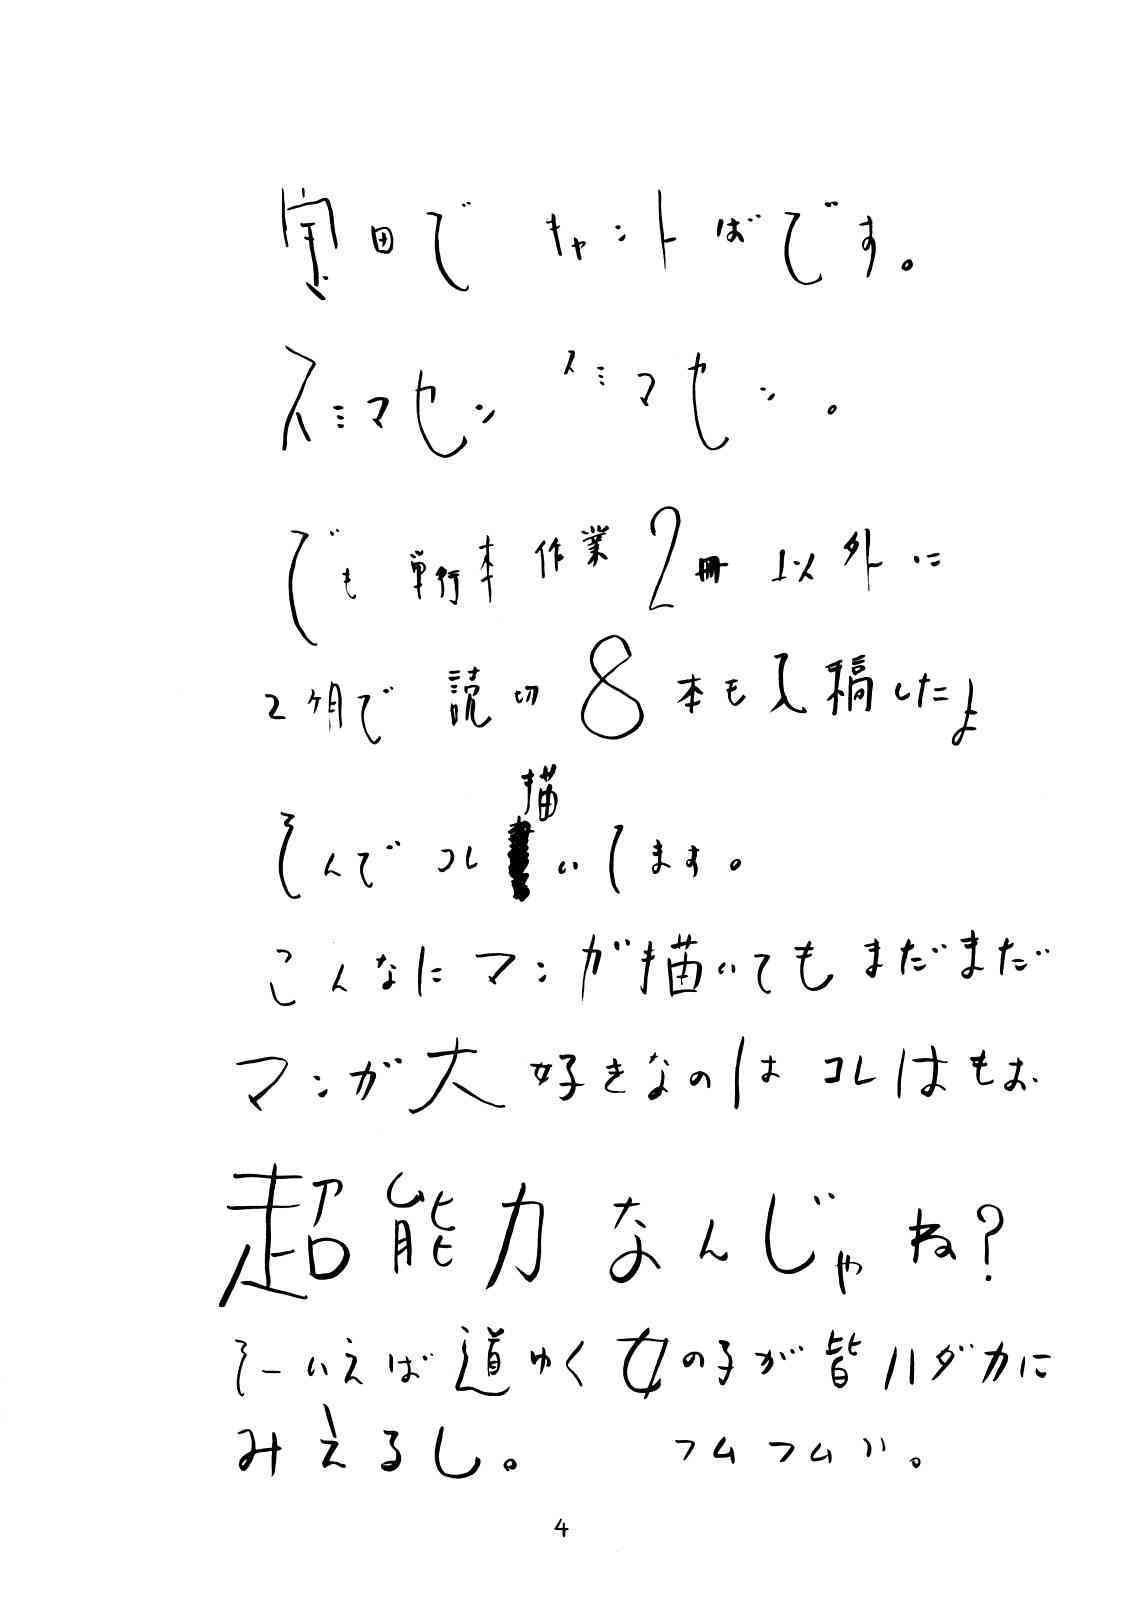 宝田で キャントばです。
スミマセン スミマセン。
でも 単行本 作業 2冊 以外に
2ケ月で 読切 8本も入稿したよ
そんで コレ 描いてます。
こんなに マンガ 描いても まだまだ
マンガ 大好きなのは コレはもお
超能力 なんじゃね?
そーいえば 道ゆく 女の子が 皆 ハダカに
みえるし。 フムフムッ。
4